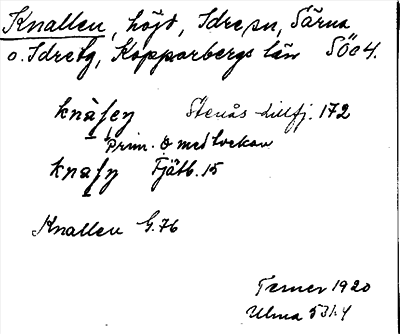 Knallen, höjd, Idre sn, Särna
o. Idre tg, Kopparbergs län SÖ04.
knàḷey Stenås-Lillfj. 172
prim. o med lockan
knaḷn Fjätb. 15
Knallen G.76
Terner 1920
Ulma 531:4